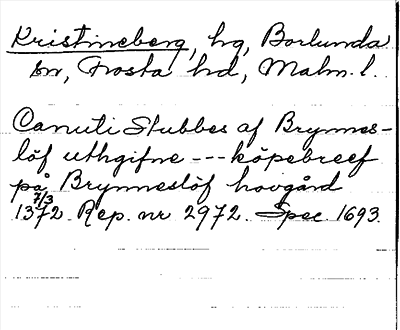 Kristineberg, hg, Borlunda
sn, Frosta hd, Malm. l.
Canuti Stubbes af Brynnes-
löf uthgifne --- köpebreef
på Brynneslöf hovgård
7/3
1372. Rep. nr 2972. Spec. 1693